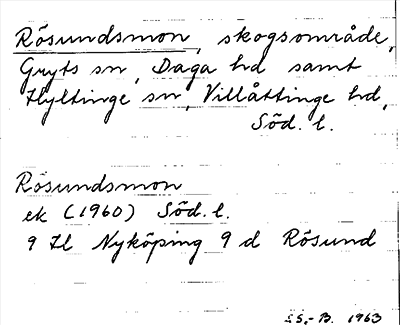 Rösundsmon, skogsområde,
Gryts sn, Daga hd samt
Hyltinge sn, Villåttinge hd,
Söd. l.
Rösundsmon
ek (1960) Söd. l.
9 H Nyköping 9 d Rösund
S.S.-B. 1963